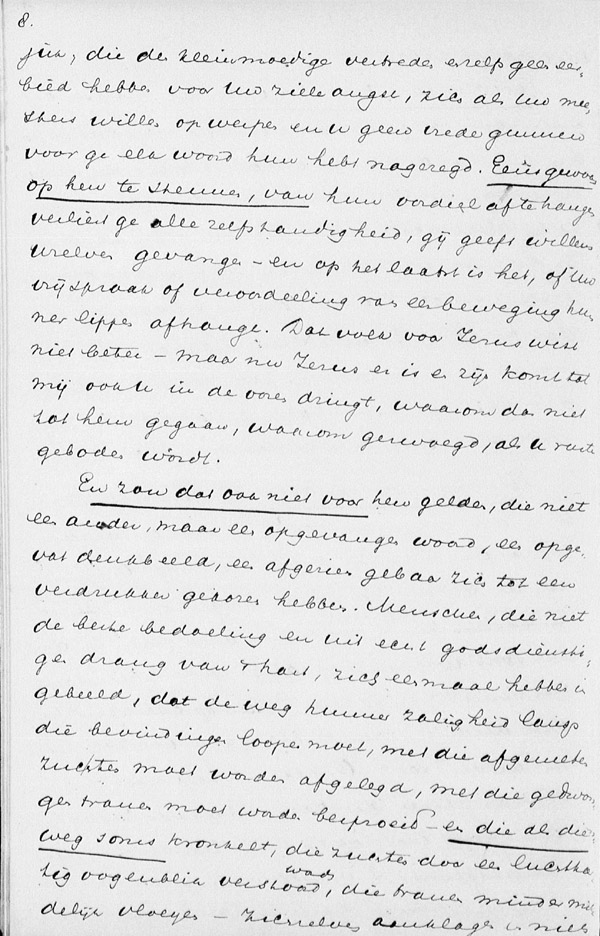 8.
juk, die de kleinmoedige vertreden en zelf geen eer-
bied hebben voor Uw zieleangst, zich als Uw mees-
ters willen opwerpen en U geen vrede gunnen
voor ge elk woord hun hebt nagezegd. Eens gewoon
op hen te steunen, van hun oordeel af te hangen
verliest ge alle zelfstandigheid, gij geeft willens
U zelven gevangen – en op het laatst is het, of Uw
vrijspraak of veroordeeling van een beweging hun-
ner lippen afhange. Dat volk voor Jezus wist
niet beter – maar nu Jezus er is en zijn komt tot
mij ook U in de ooren dringt, waarom dan niet
tot hem gegaan, waarom gezwoegd, als U rust
geboden wordt.
En zou dat ook niet voor hen gelden, die niet
een ander, maar een opgevangen woord, een opge-
vat denkbeeld, een afgezien gebaar zich tot een
verdrukker gekozen hebben. Menschen, die met
de beste bedoeling en uit echt godsdiensti-
gen drang van 't hart, zich eenmaal hebben in-
gebeeld, dat de weg hunner zaligheid langs
die bevindingen loopen moet, met die afgemeten
zuchten moet worden afgelegd, met die gedwon-
gen tranen moet worden besproeid – en die als die
weg soms kronkelt, die zuchten door een luchtha-
tig oogenblik verstoord, die tranen minder mid-
delijk vloeyen – zichzelven aanklagen in niets